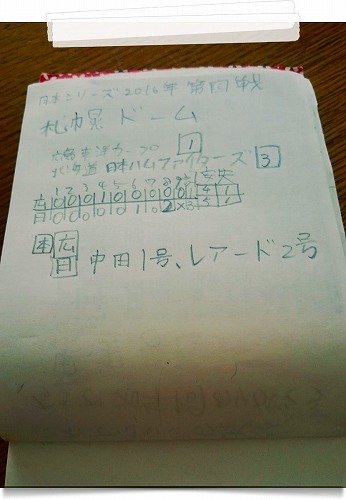 日本シリーズ2016年 第四戦
札幌ドーム
広島東洋カープ 1
北海道 日本ハムファイターズ 3
1 2 3 4 5 6 7 8 9 計 安 失
広 0 0 0 1 0 0 0 0 0 1 4 1
日 0 0 0 0 0 1 0 2 × 3 5 1
本 広
日 中田1号、レアード2号